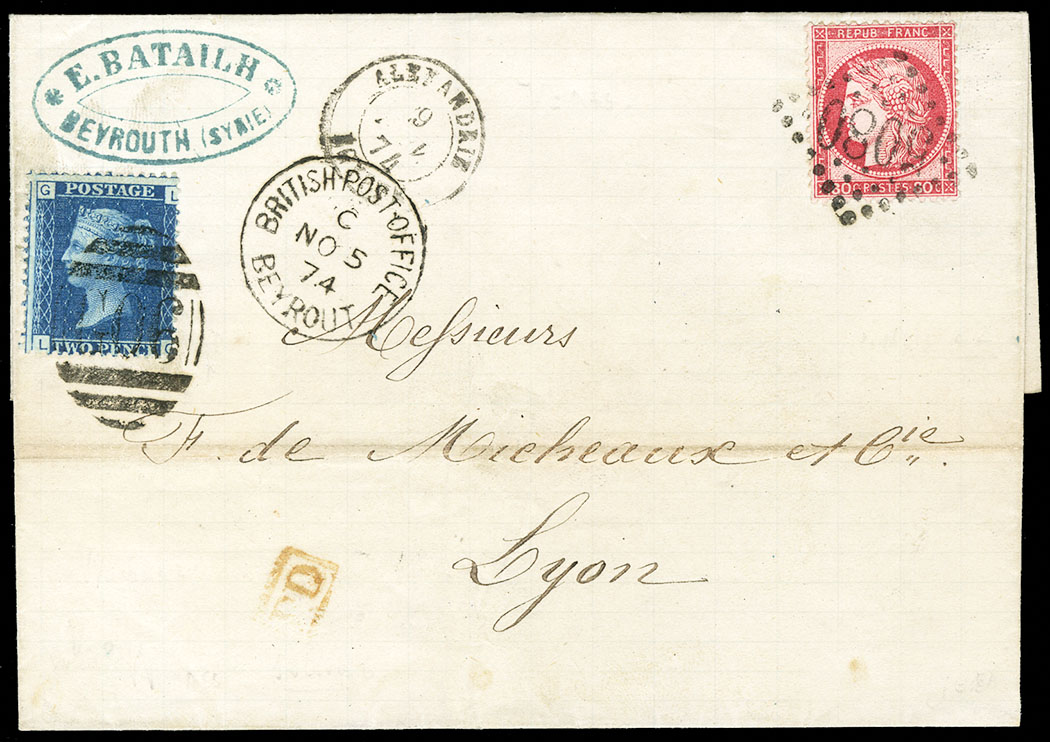 * E. BATAILH *
BEYROUTH (SYRIE)
ALEXANDRIE
9
74
BRITISH POST OFFICE
C
NO 5
74
BEYROUT
REPUB FRANC
80 C POSTES 80 C
G L
POSTAGE
L G
TWO PENCE
Messieurs
F. de Micheaux et Cie.
Lyon
PD